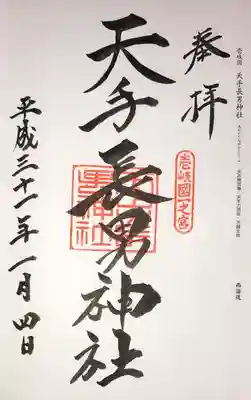 壱岐国 天手長男神社
西海道
奉拝
壱岐國一之宮
天手長男神社
平成三十一年一月四日